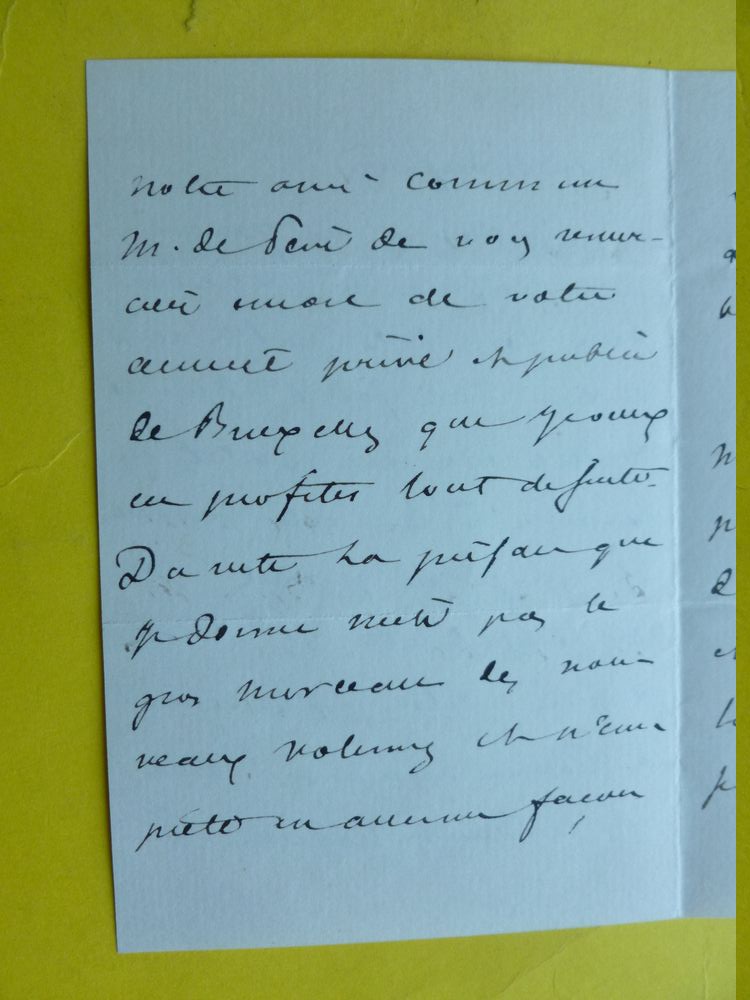 notre ami commun
M. de de vous remer-
cier encore de votre
accueil privé et public
de Bruxelles que je veux
en profiter tout de suite.
la préface que
je donne n'est pas le
gros morceau des nou-
veaux volumes et n'em-
piète en aucune façon